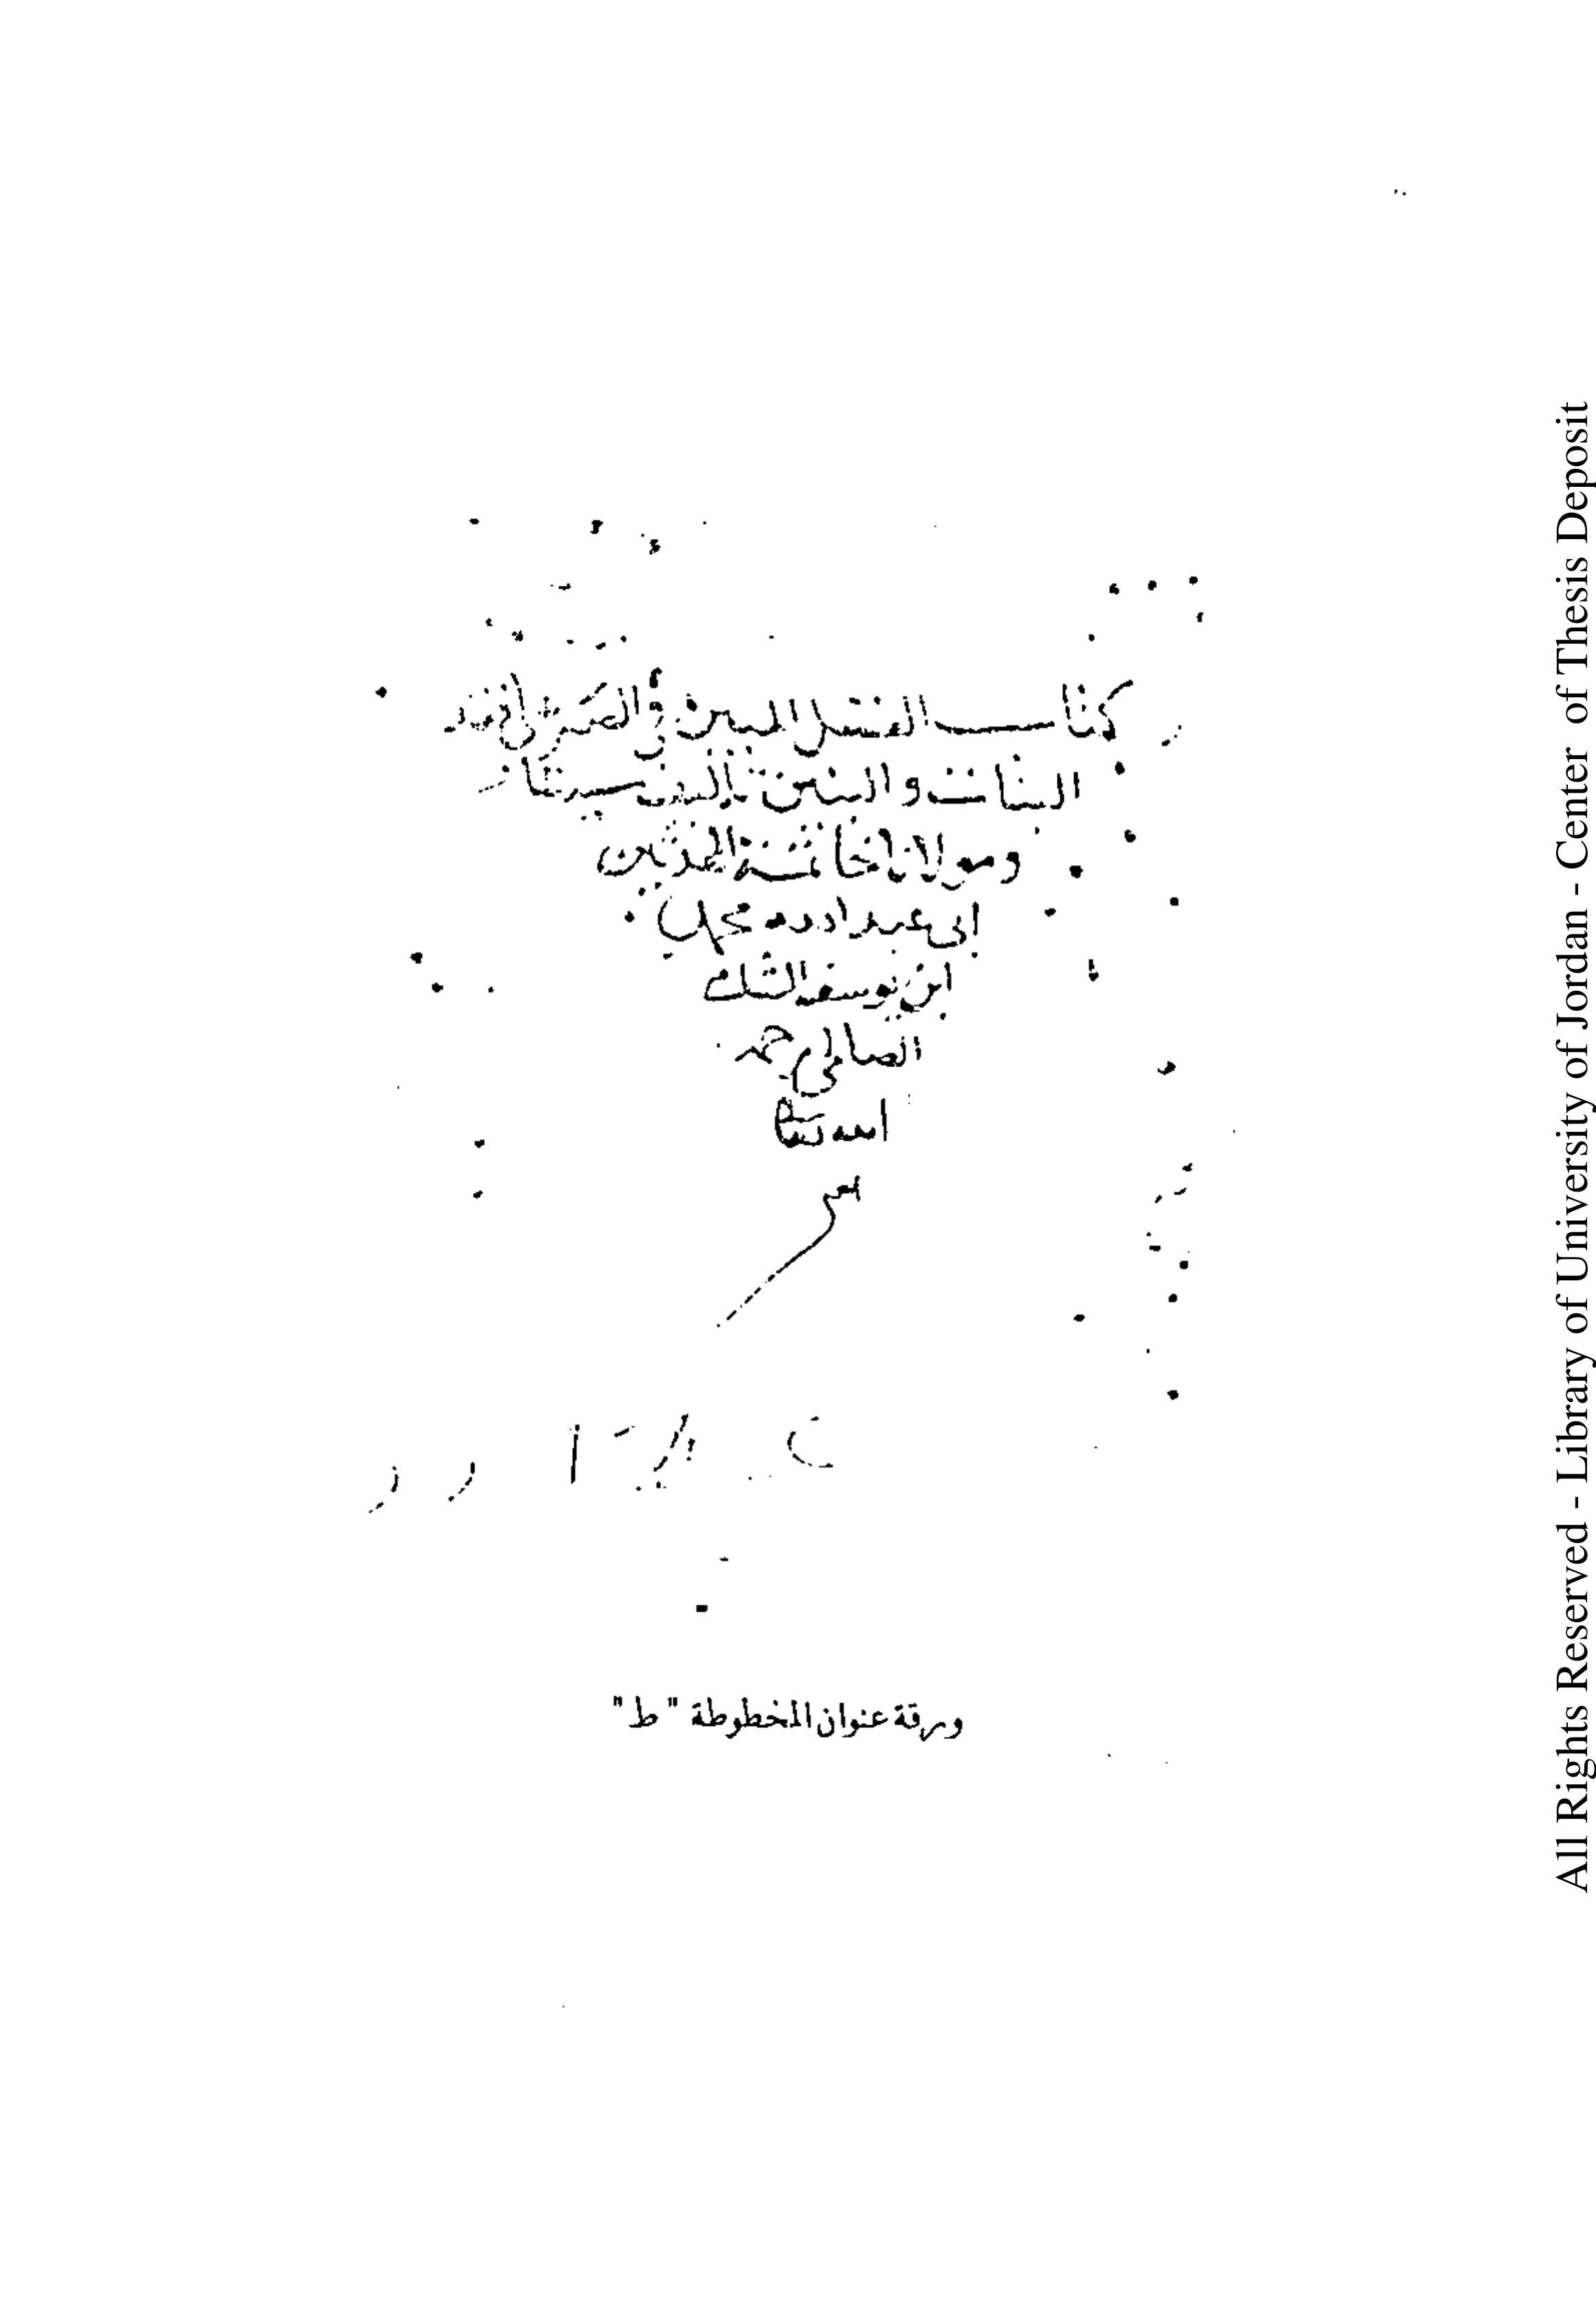 كتاب الفضل المبين في الصبر على فقد
البنات والبنين تأليف سيدنا
ومولانا خاتمة المحدثين
ابى عبد الله محمد
ابن يوسف الشامي
الصالحي رحمه
الله تعالى
ورقة عنوان المخطوطة "ط"
All Rights Reserved - Library of University of Jordan - Center of Thesis Deposit